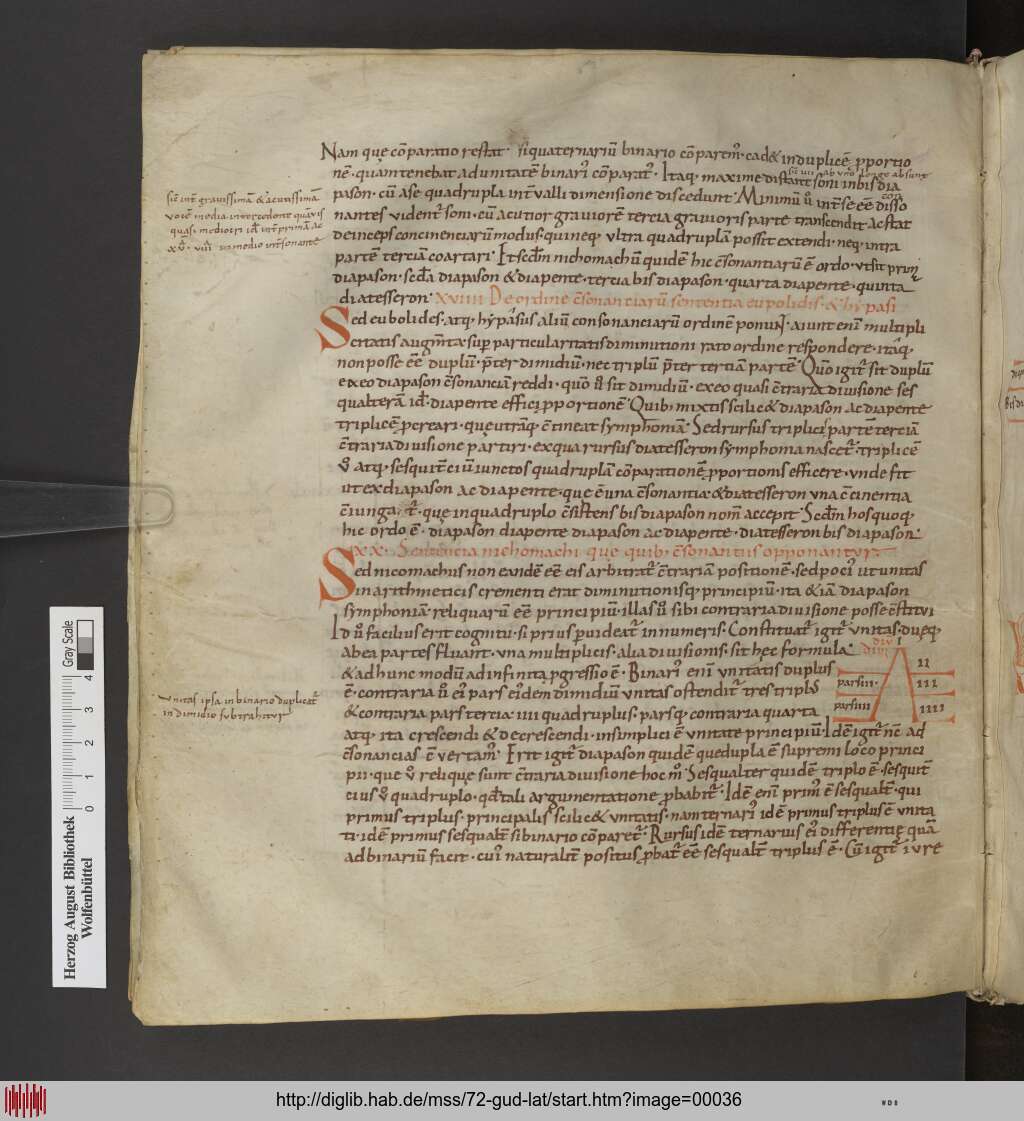 Nam quę cōparatio restat. si quaternariū binario cōparem᷒. cadet in duplicē p̱portio
nē. quam tenebat ad unitatē binari᷒ cōparat᷒. Itaq; maxime distant soni in bis dia
sic uii ab uno longe absunt
pason. cū a se quadrupla int̄ualli dimensione discedunt. Minimū ū int̄ se eē disso
nantes vident᷒ soni. cū acutior grauiorē tercia grauioris parte transcendit. ac stat
deinceps concinenciarū modus. qui neq; ultra quadruplā possit extendi. neq; intra
partē terciam coartari. Et sc̄dm nichomachū quidē hic c̄sonantiarū ē ordo. vt sit prim
diapason. sc̄da diapason & diapente. tercia bis diapason. quarta diapente. quinta
diatesseron. XVIIII De ordine c̄sonanciarū sententia eupolidis. & hypasi
Sed eubolides. atq; hyPasus aliū consonanciarū ordinē ponunt. aiunt eni᷒ multipli
citatis augm̄ta. sup particularitatis diminutioni rato ordine respondere. itaq;
non posse eē duplū. p̄ter dimidiū. nec triplū p̄ter tertiam partē. Quo igit᷒ sit duplū
ex eo diapason c̄sonanciam reddi. quo ū sit dimidiū. ex eo quasi c̄traria diuisione ses
qualteram id ē diapente effici p̱portionē. Quib; mixtis scilic& diapason ac diapente
triplicē p̱creari. quę utramq; c̄tineat symphoniam. Sed rursus triplici partē terciā
c̄traria diuisione partiri. ex qua rursus diatesseron symphonia nascet᷒. triplicē
ū atq; sesquit̄ciū iunctos quadruplā cōparationē p̱portionis efficere. unde fit
ut ex diapason ac diapente. que ē una c̄sonantia & diatesseron una c̄cinentia
c̄iungat᷒. que in quadruplo c̄sistens bis diapason nom̄ accepit. Sc̄dm hos quoq;
hic ordo ē. diapason diapente diapason ac diapente. diatesseron bis diapason.
XX. Sentencia nichomachi que quib; c̄sonantiis opponantur.
Sed nicomachus non eandē eē eis arbitrat᷒ c̄trariam positionē. sed poci᷒ ut unitas
in arithmeticis crementi erat diminutionisq; principiū. ita &iā diapason
symphoniā reliquarū eē principiū. illas ū sibi contraria diuisione posse c̄stitui
Id ū facilius erit cognitu. si prius p̱uideat᷒ in numeris. Constituat᷒ igit᷒ unitas. duęq;
ab ea partes fluant. una multiplicis. alia diuisionis. sit hęc formula.
& ad hunc modū ad infinita p̱gressio ē. Binari᷒ eni᷒ unitatis duplus
ē. contraria ū ei᷒ pars eidem dimidiū unitas ostendit᷒. tres triplus
& contraria pars tertia. iiii quadruplus. parsq; contraria quarta
atq; ita crescendi & decrescendi. in simplici ē unitate principiū. Idē igit᷒ nc̄ ad
c̄sonancias c̄vertam᷒. Erit igit᷒ diapason quidē que dupla ē supremi loco princi
pii. que ū reliquę sunt c̄traria diuisione hoc m̊. Sesqualter quidē triplo ē. sesquit̄
cius ū quadruplo. qđ tali argumentatione p̱babit᷒. Idē eni᷒ prim᷒ ē sesqualt̄. qui
primus triplus. principalis scilic& unitatis. nam ternari᷒ idē primus triplus ē unita
ti. idē primus sesqualt̄ si binario cōparet᷒. Rursus idē ternarius ei᷒ differentię quā
ad binariū facit. cui᷒ naturalit̄ positus p̱bat᷒ eē sesqualt̄ triplus ē. Cū igit᷒ iure
I
II
III
IIII
pars III.
pars IIII
unitas ipsa in binario duplicat᷒
in dimidio subtrahitur
Herzog August Bibliothek
Wolfenbüttel
Gray Scale
0 1 2 3 4
http://diglib.hab.de/mss/72-gud-lat/start.htm?image=00036